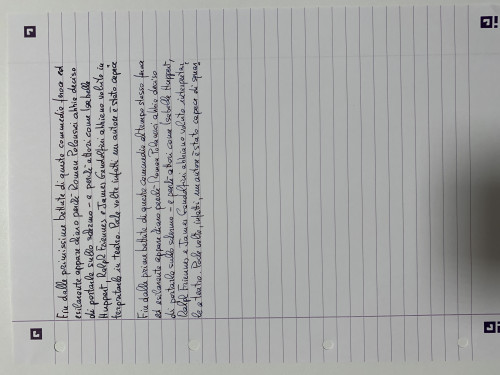 Fin dalle primissime battute di questa commedia feroce ed
esilarante appare chiaro perché Roman Polanski abbia deciso
di portarla sullo schermo - e perché attori come Isabelle
Huppert, Ralph Fiennes e James Gandolfini abbiano voluto in
terpretarla in teatro. Poche volte infatti un autore è stato capace
Fin dalle prime battute di questa commedia al tempo stesso feroce
ed esilarante appare chiaro perché Roman Polanski abbia deciso
di portarla sullo schermo - e perché attori come Isabelle Huppert,
Ralph Fiennes e James Gandolfini abbiano voluto interpretar
la a teatro. Poche volte, infatti, un autore è stato capace di